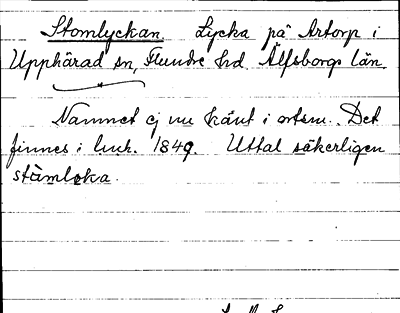 Stomlyckan. Lycka på Artorp i
Upphärad sn, Flundre hd. Älfsborgs län.
Namnet ej nu känt i ortsn. Det
finnes i lmk. 1849. Uttal säkerligen
stòmløka.